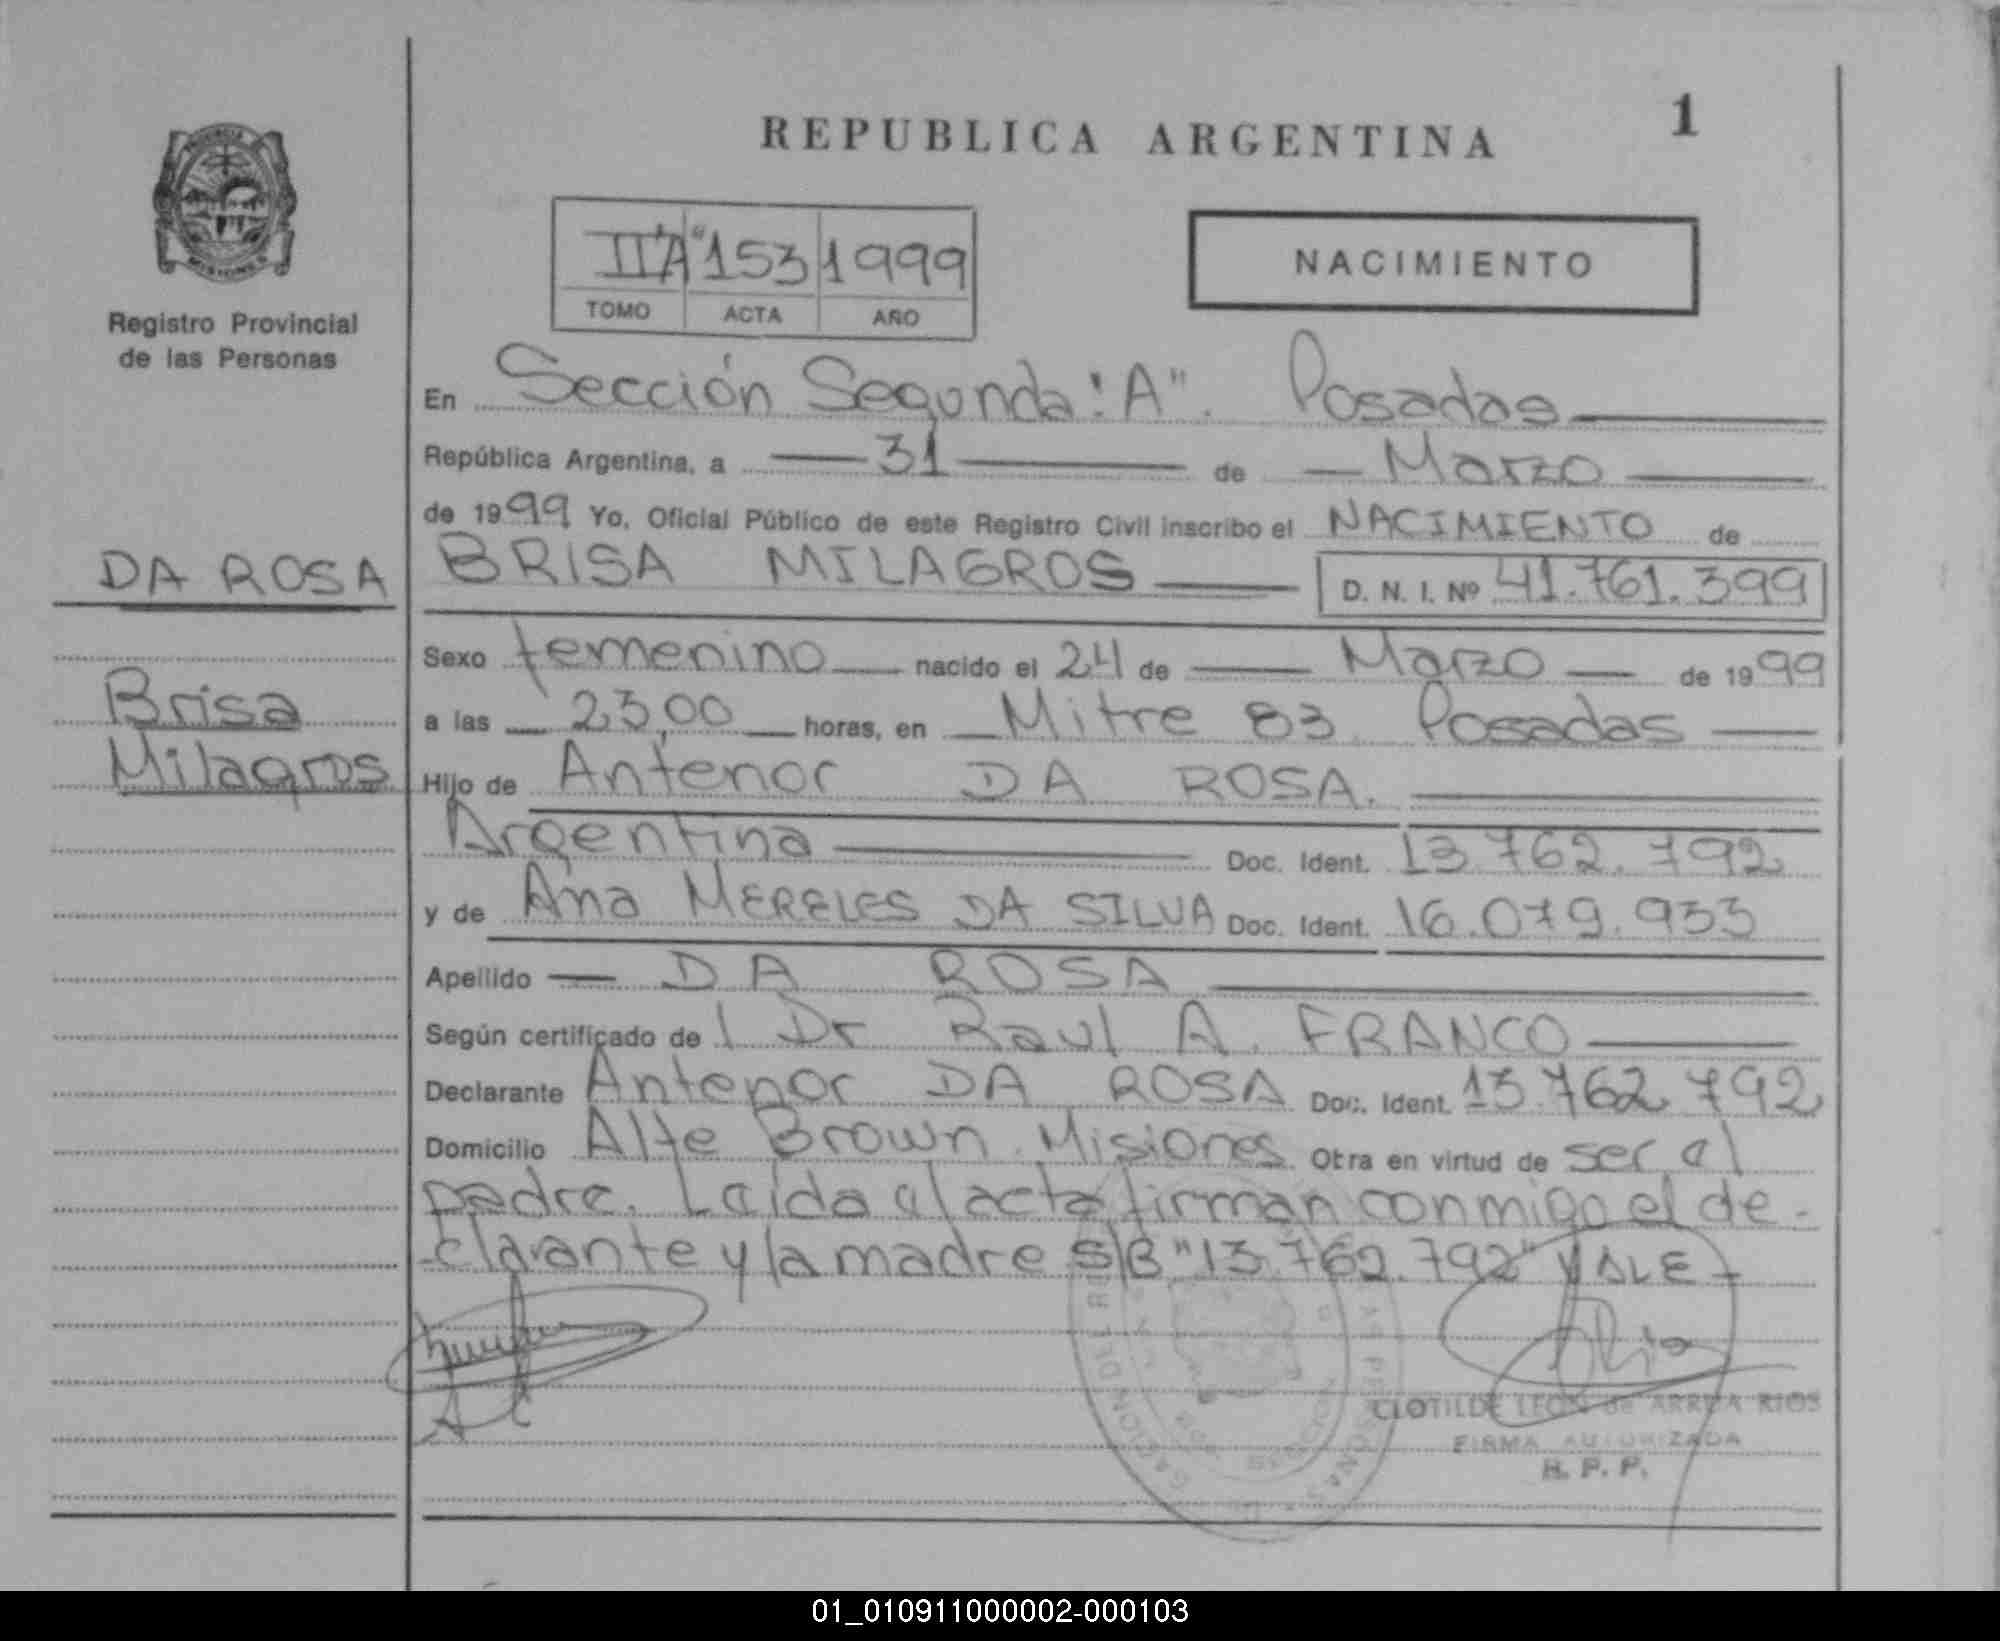 REPUBLICA ARGENTINA 1
PROVINCIA
MISIONES
Registro Provincial
de las Personas
II"A" 153 1999
TOMO ACTA AÑO
NACIMIENTO
En Sección Segunda "A". Posadas
República Argentina, a 31 de Marzo
de 1999 Yo, Oficial Público de este Registro Civil inscribo el NACIMIENTO de
DA ROSA
BRISA MILAGROS D. N. I. Nº 41.761.399
Sexo femenino nacido el 24 de Marzo de 1999
Brisa
Milagros
a las 23,00 horas, en Mitre 83 Posadas
Hijo de Antenor DA ROSA.
Argentina Doc. Ident. 13.762.792
y de Ana MERELES DA SILVA Doc. Ident. 16.079.933
Apellido DA ROSA
Según certificado de l Dr Raul A. FRANCO
Declarante Antenor DA ROSA Doc. Ident. 13.762.792
Domicilio Alte Brown. Misiones Otra en virtud de ser el
padre. Leída el acta firman conmigo el de-
clarante y la madre S/B "13.762.792" VALE
CLOTILDE LEON de ARRUA RIOS
FIRMA AUTORIZADA
R. P. P.
01_010911000002-000103